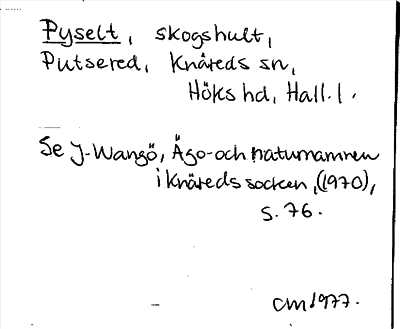 Pyselt, skogshult,
Putsered, Knäreds sn,
Höks hd, Hall. l.
Se J-Wangö, Ägo- och naturnamnen
i Knäreds socken, (1970),
s. 76.
CM 1977.